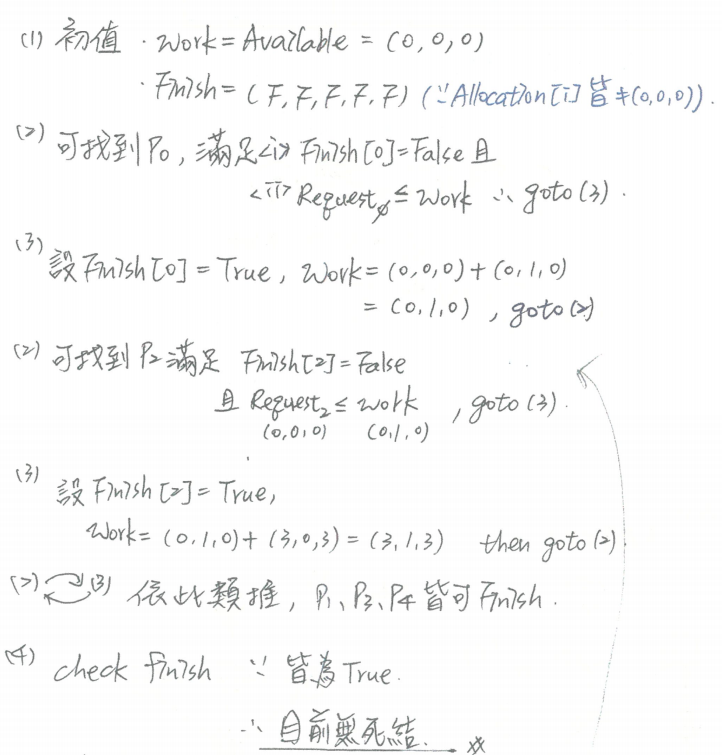 (1) 初值 · Work = Available = (0, 0, 0)
· Finish = (F, F, F, F, F) (∵Allocation[i] 皆≠(0,0,0)).
(2) 可找到 P0, 滿足<i> Finish[0]=False 且
<ii> Request0 ≤ Work ∴ goto (3).
(3) 設 Finish[0] = True, Work = (0,0,0) + (0,1,0)
= (0,1,0), goto (2)
(2) 可找到 P2 滿足 Finish[2]=False
且 Request2 ≤ work, goto (3).
(0,0,0) (0,1,0)
(3) 設 Finish[2] = True,
Work = (0,1,0) + (3,0,3) = (3,1,3) then goto (2)
(2) (3) 依此類推, P1、P3、P4 皆可 Finish.
(4) check finish ∵ 皆為 True.
∴ 目前無死結.